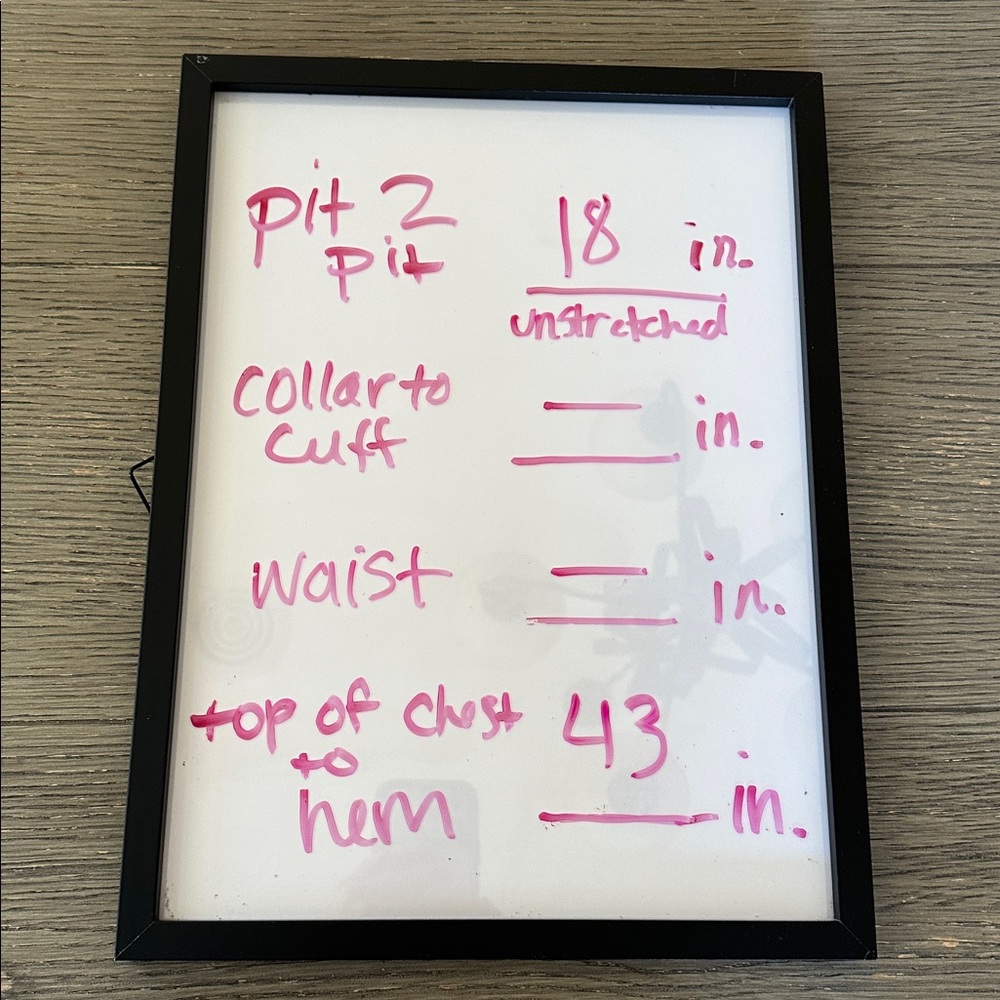 pit 2 18 in.
pit
unstretched
collar to — in.
cuff
waist — in.
top of chest 43
to
hem in.